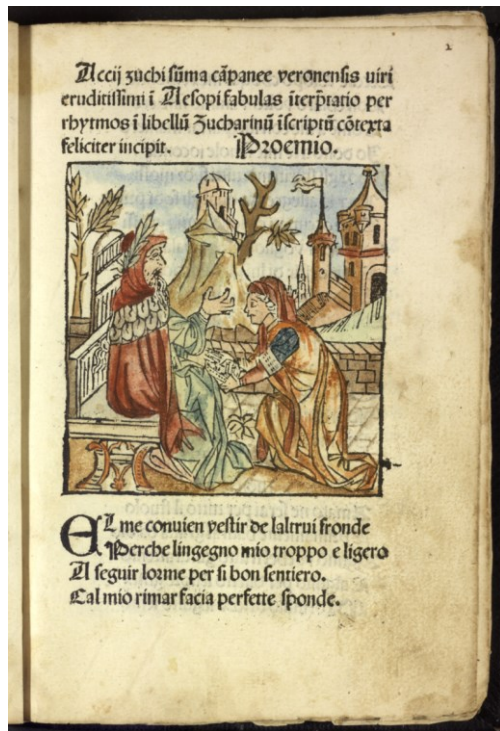 2
Accij zuchi sũma cãpanee veronensis uiri
eruditissimi ĩ Aesopi fabulas ĩterp̃tatio per
rhytmos ĩ libellũ Zucharinũ ĩscriptũ cõtexta
feliciter incipit. Proemio.
EL me conuien vestir de laltrui fronde
Perche lingegno mio troppo e ligero
A seguir lorme per si bon sentiero.
Cal mio rimar facia perfette sponde.